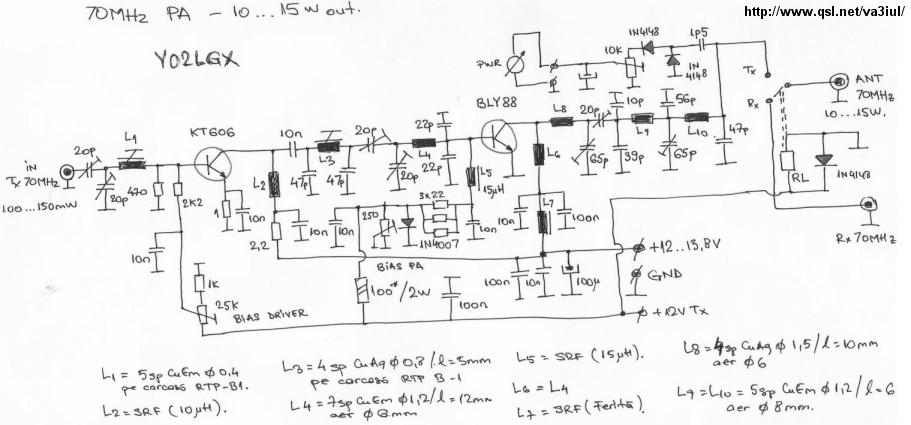 70MHz PA - 10...15W out.
http://www.qsl.net/va3iul/
YO2LGX
PWR
10K
1N4148
1p5
1N
4148
Tx
Rx
ANT
70MHz
10...15W.
BLY88
L8
20p
10p
56p
L9
L10
47p
65p
39p
65p
KT606
10n
L3
20p
22p
L4
22p
L1
20p
iN
Tx 70MHz
100...150mW
20p
470
2K2
1
10n
L2
47p
47p
20p
L5
15µH
L6
RL
1N4148
Rx 70MHz
10n
2,2
10n
10n
250
3x22
1N4007
10n
L7
100n
BIAS PA
+12...13,8V
GND
1K
25K
BIAS DRIVER
100*/2W
100n
100n
10n
100µ
+12V Tx
L1 = 5sp CuEm ϕ0,4
pe carcasa RTP-B1.
L2 = SRF (10µH).
L3 = 4sp CuAg ϕ0,8/l=5mm
pe carcasa RTP B-1
L4 = 7sp CuEm ϕ1,2/l=12mm
aer ϕ8mm.
L5 = SRF (15µH).
L6 = L4
L7 = SRF (Ferita)
L8 = 4sp CuAg ϕ1,5/l=10mm
aer ϕ6
L9 = L10 = 5sp CuEm ϕ1,2/l=6
aer ϕ8mm.